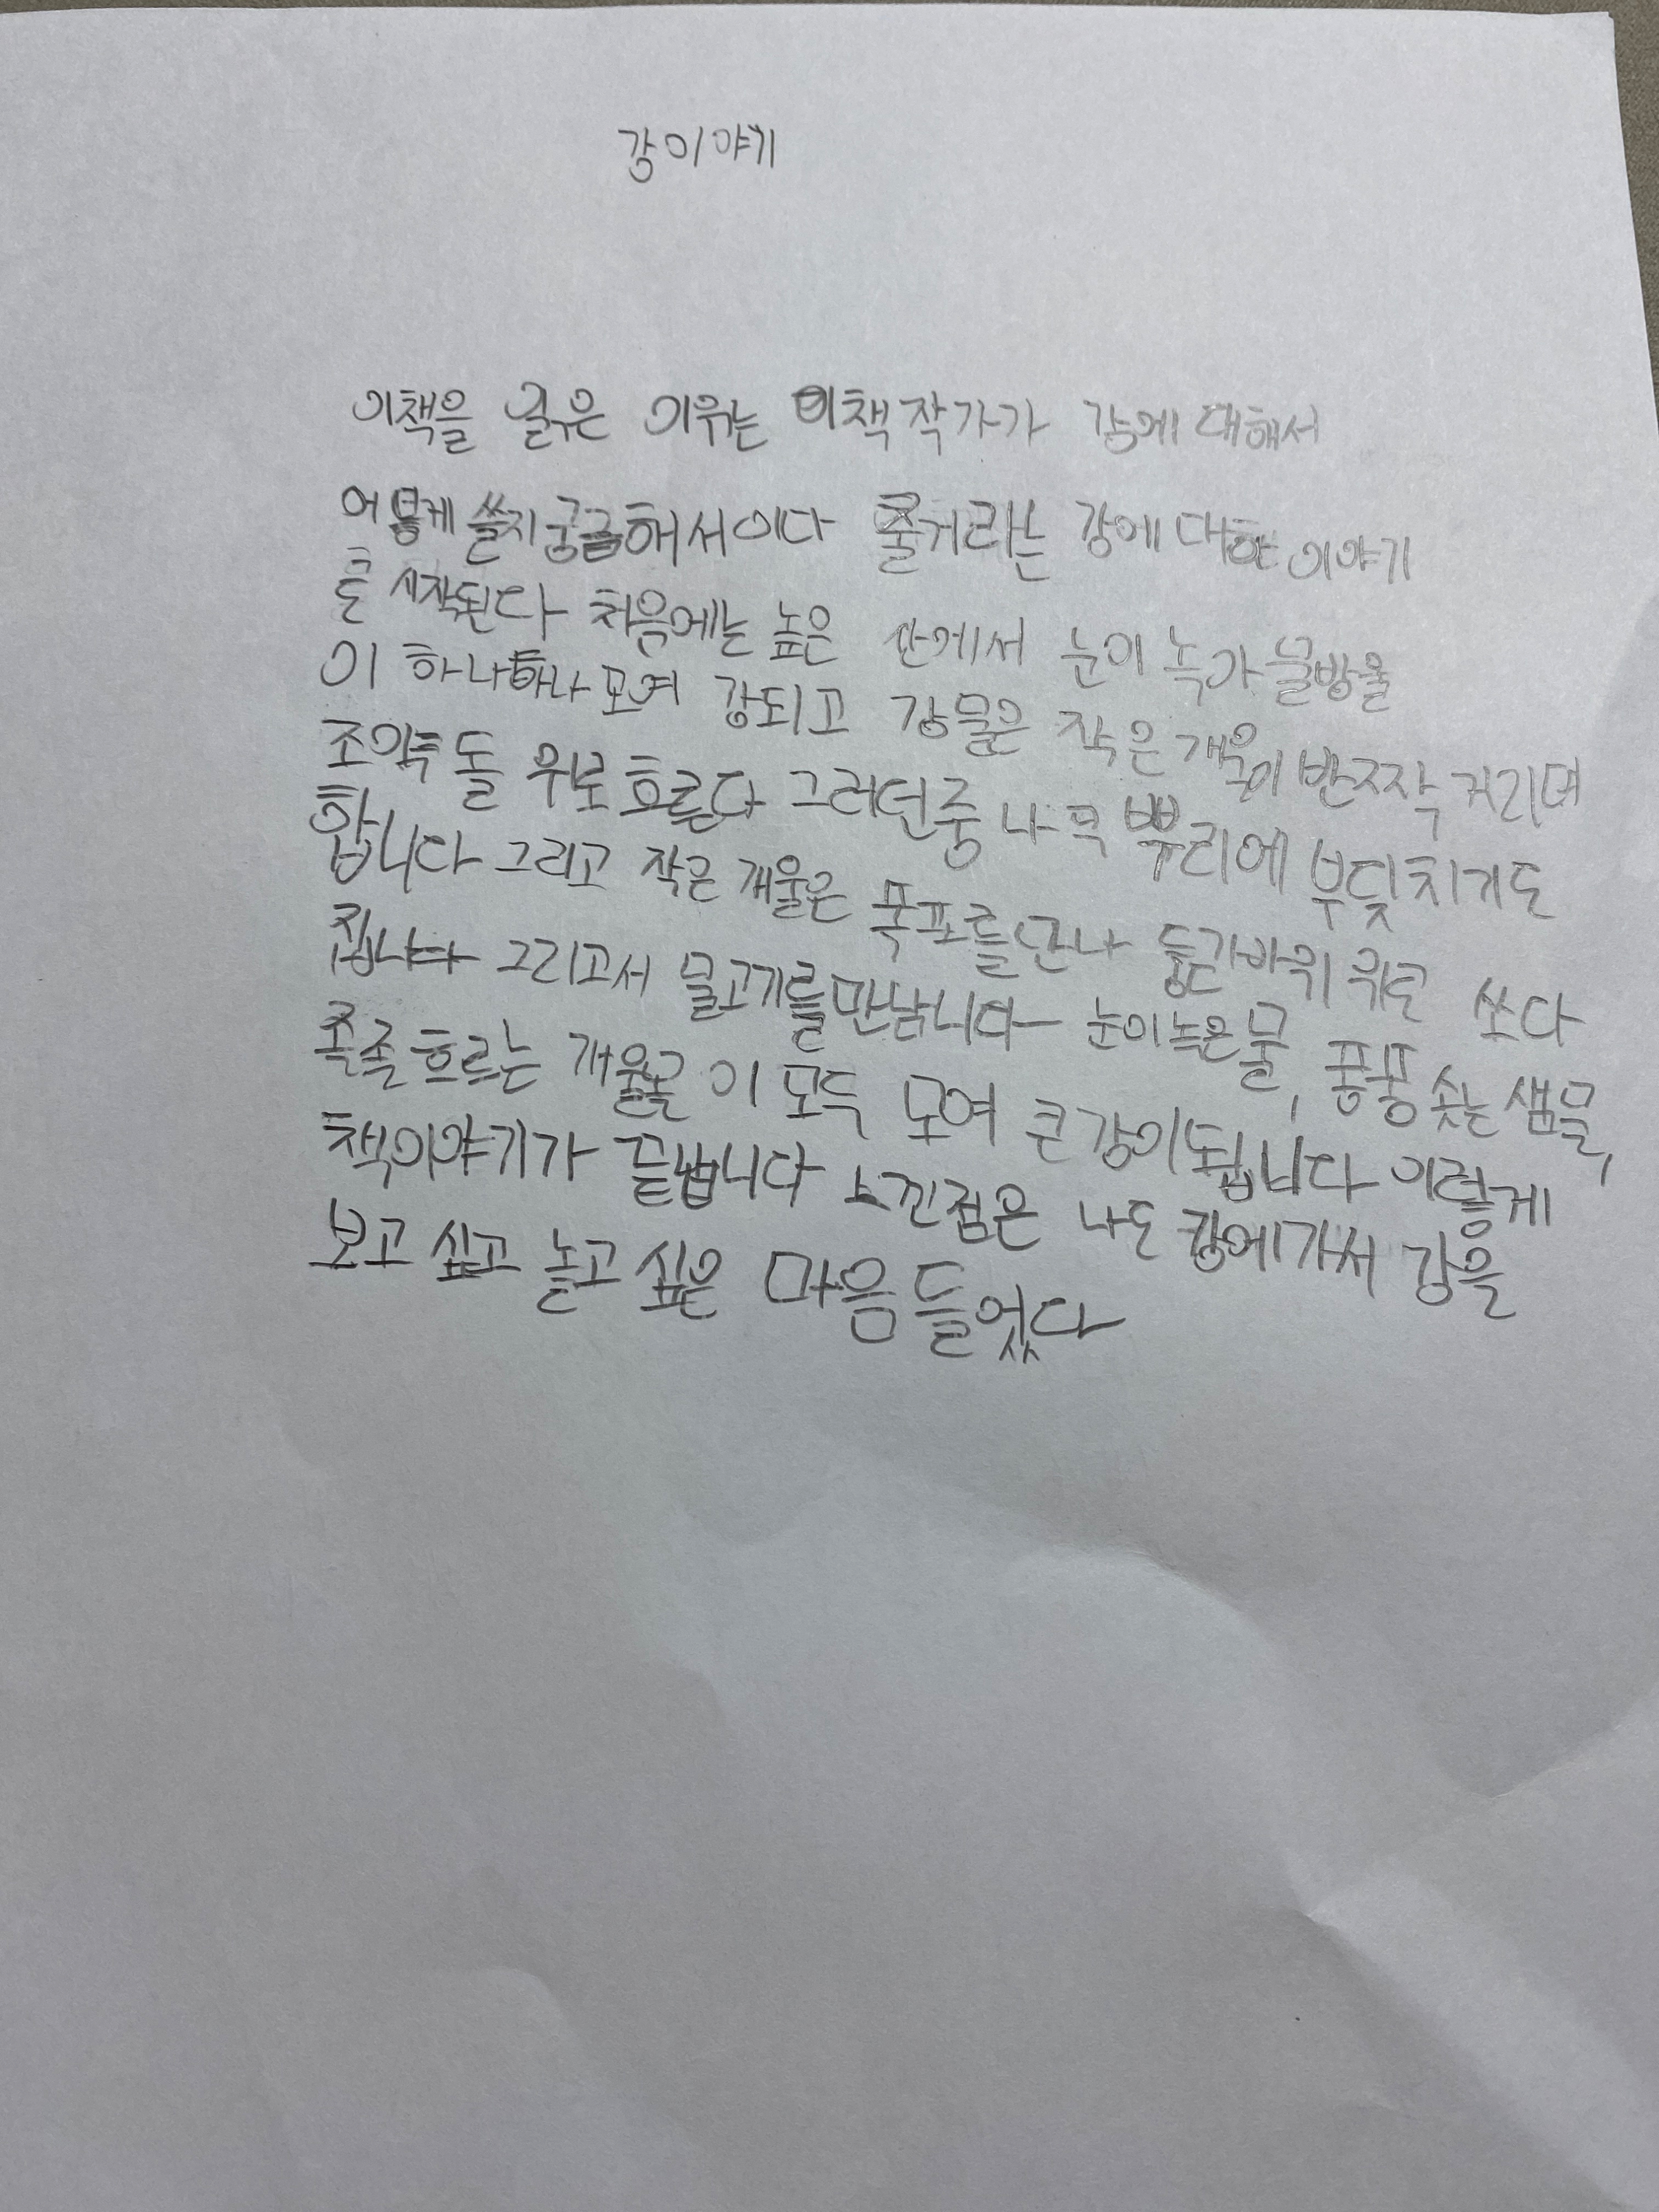 강이야기
이책을 읽유은 이유는 이책 작가가 강에 대해서
어떻게 쓸지 궁금해서이다 줄거리는 강에 대한 이야기
로 시작된다 처음에는 높은 산에서 눈이 녹가 물방울
이 하나하나 모여 강되고 강물은 작은 개울이 반짝작 거리며
조약돌 위로 흐른다 그러던중 나무 뿌리에 부딪치기도
합니다 그리고 작은 개울은 폭포를 만나 바위 위로 쏘다
집니다 그리고서 물고기를 만납니다 눈이 녹은 물, 퐁퐁 솟는 샘물,
졸졸 흐르는 개울물 이 모두 모여 큰 강이 됩니다 이렇게
책이야기가 끝납니다 느낀점은 나도 강에가서 강을
보고 싶고 놀고 싶은 마음 들었다